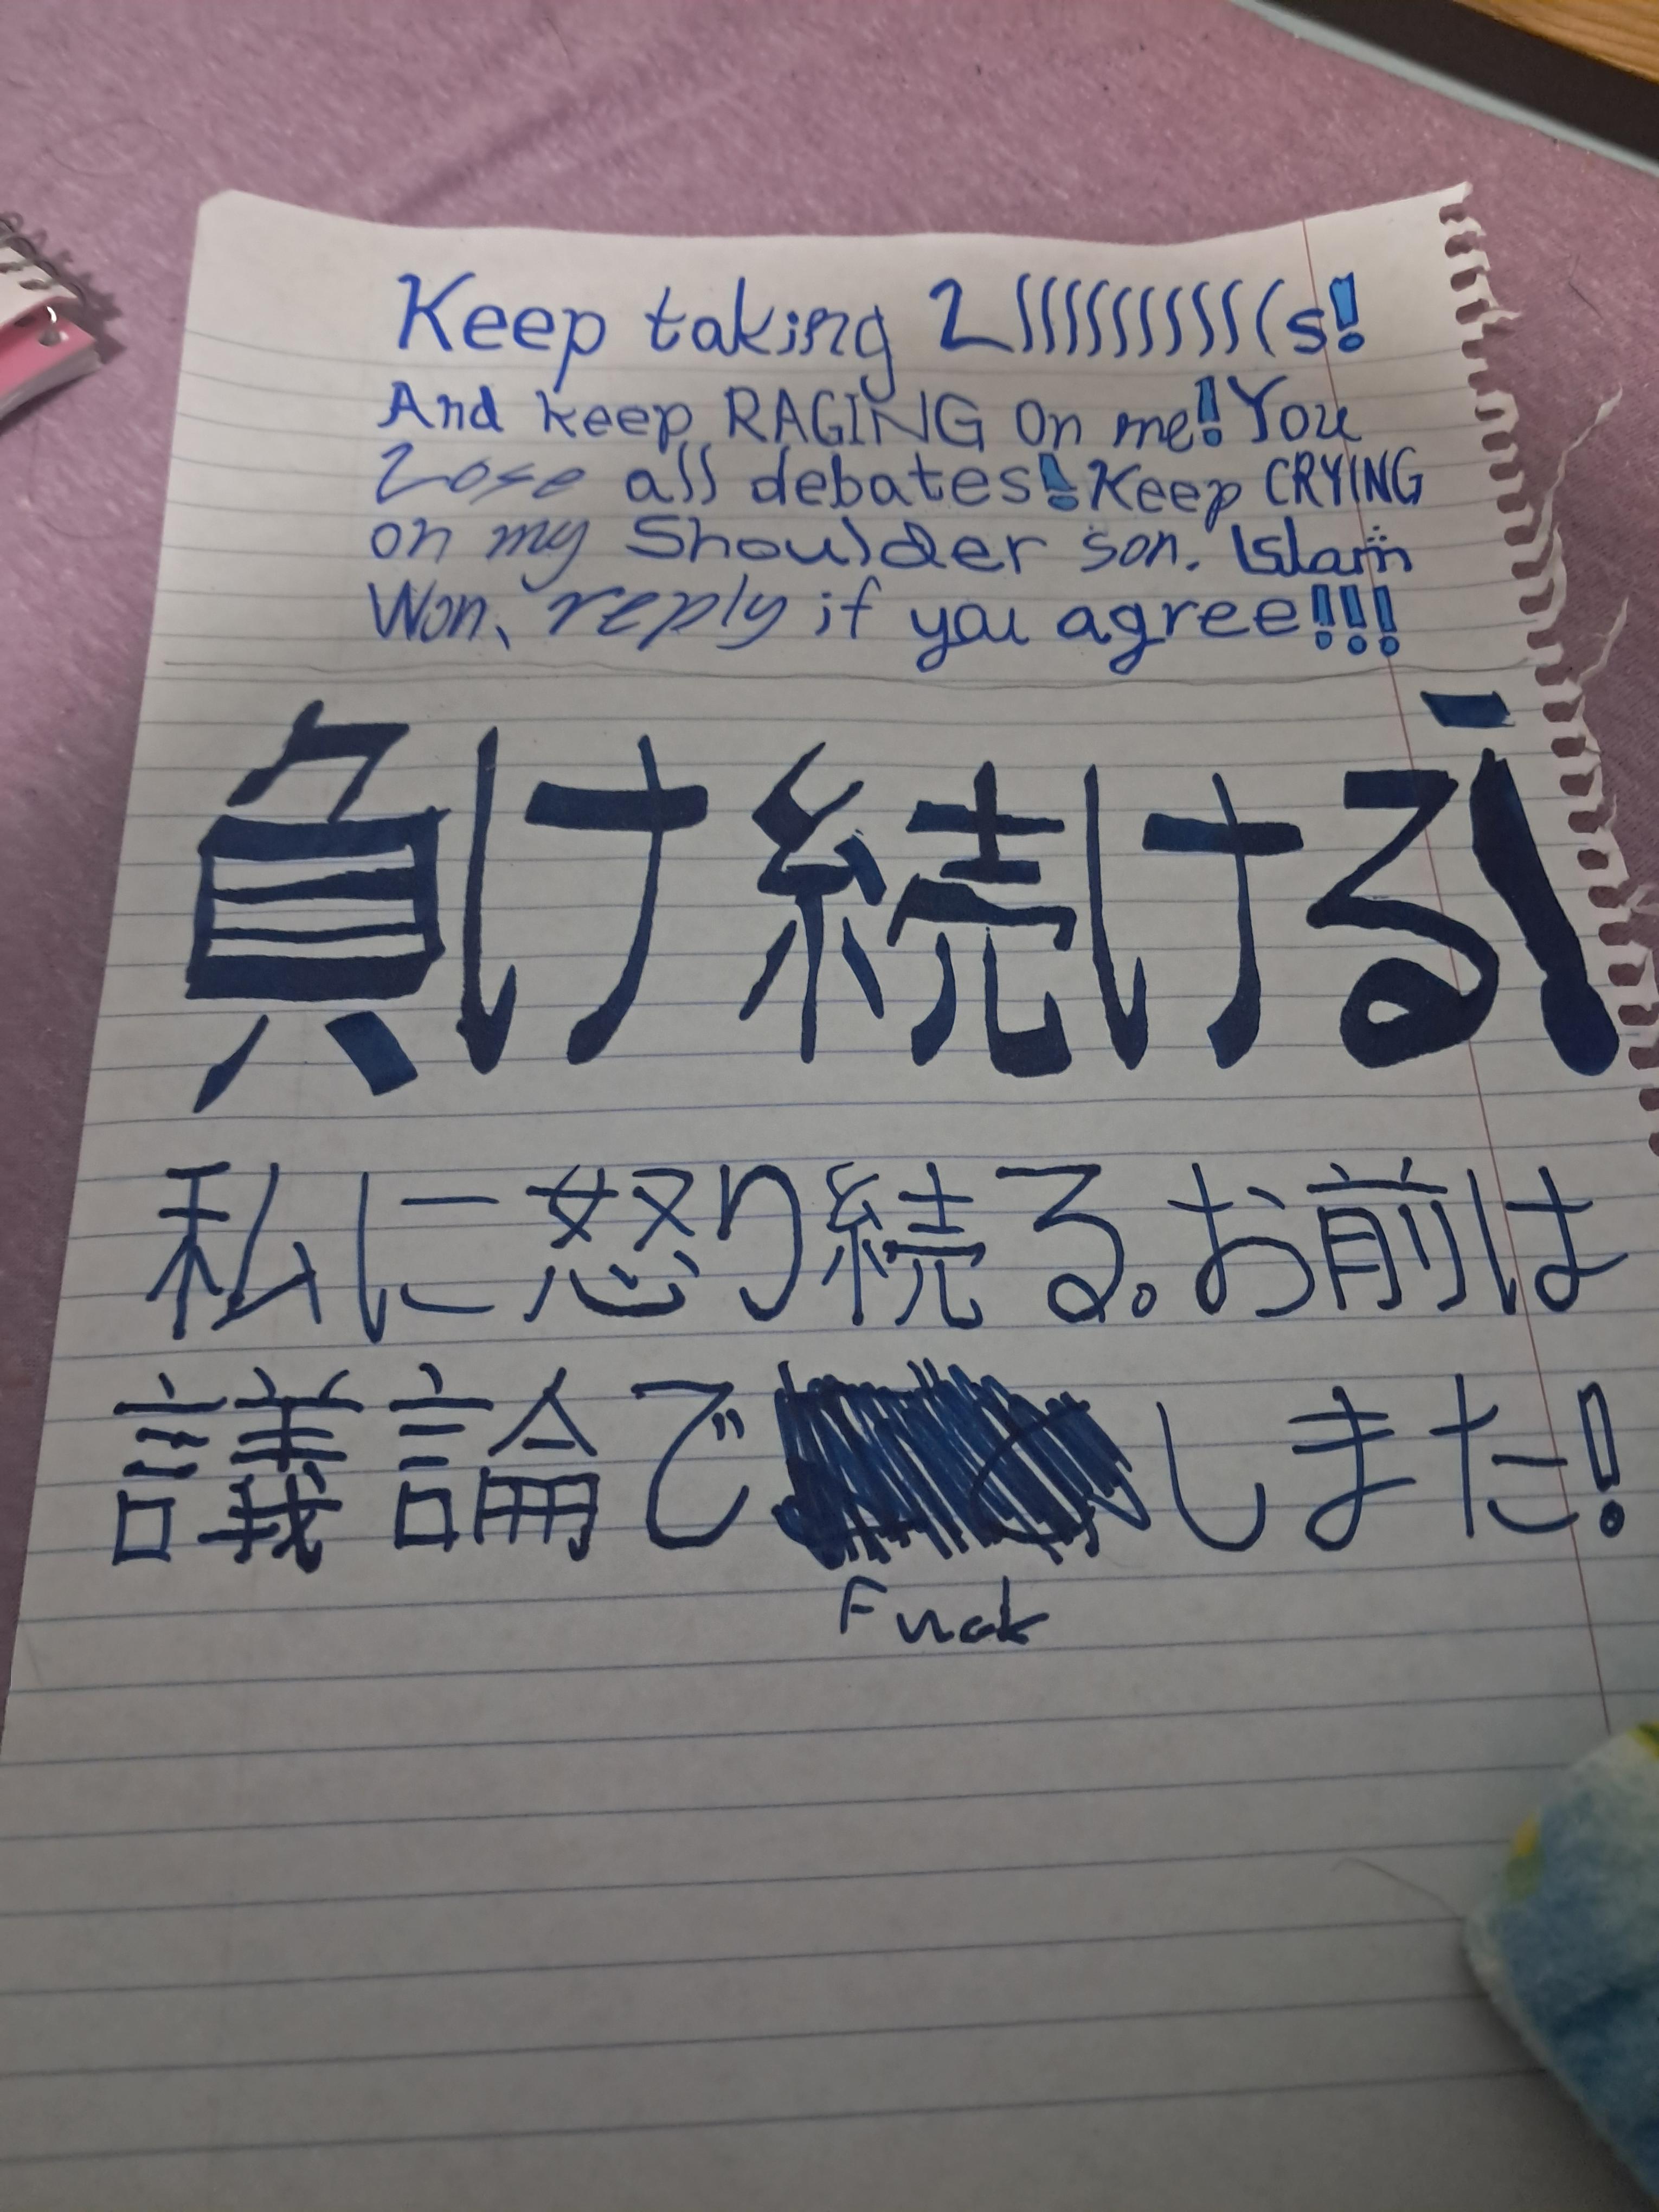 Keep taking LSSSSSSSSS(s!
And keep RAGING On me! You
Lose all debates! Keep CRYING
on my Shoulder son. Islam
Won, reply if you agree!!!
負け続ける!
私に怒り続る。お前は
議論で しました!
Fuck